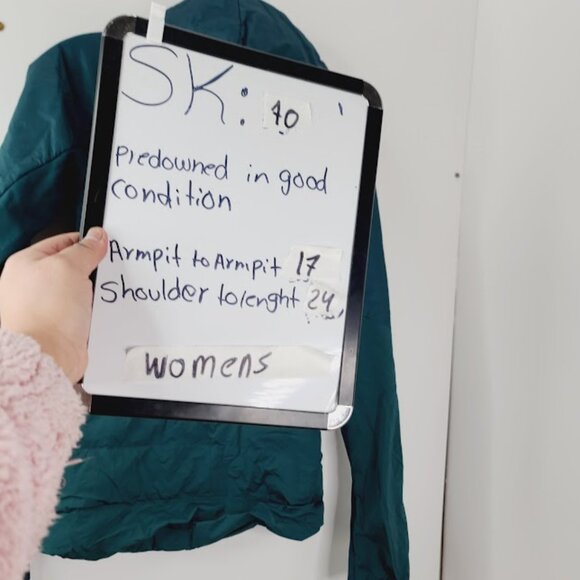 SK: 40
Predowned in good
condition
Armpit to Armpit 17
Shoulder to lenght 24
womens